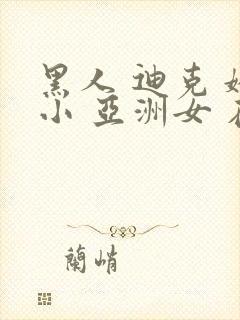 黑人 迪克
小 亞洲女
蘭峭